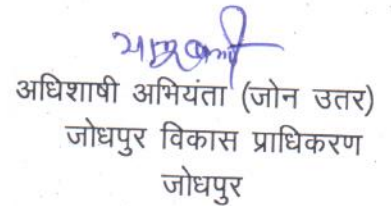 अधिशाषी अभियंता (जोन उतर)
जोधपुर विकास प्राधिकरण
जोधपुर